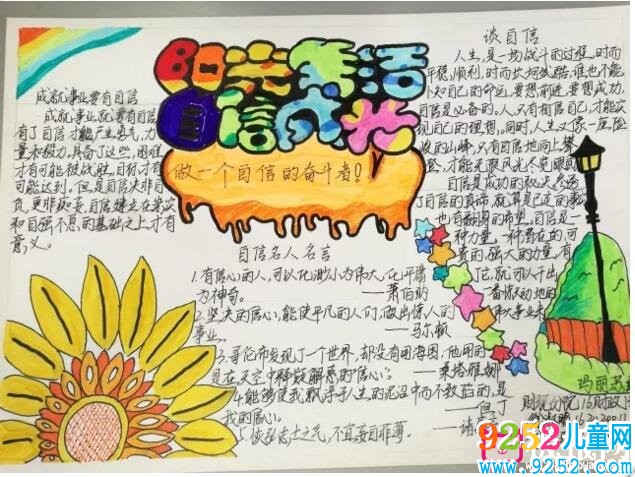 阳光生活
自信成光
做一个自信的奋斗者!
成就事业要有自信
成就事业就要有自信,
有了自信才能产生勇气,力
量和毅力。具备了这些,困难
才有可能被战胜,目标才有
可能达到。但是自信决非自
负,更非痴妄,自信建立在崇实
和自强不息的基础之上才有
意义。
谈自信
人生,是一场战斗的过程,时而
平稳,顺利,时而坎坷
自信是必备的。人只有有信自己,才能实
现自己的理想。同时,人生又像一座险
峻的山峰,只有自信地向上攀
自信是成功的秘诀
也有翻身的希望。自信是一
种力量,一种潜在的可
贵的、强大的力量,有
了它,就可以干出
一番惊天动地的
伟大事业来
自信名人名言
1.有信心的人,可以化渺小为伟大,化平庸
为神奇。 ——萧伯纳
2.坚决的信心,能使平凡的人们,做出惊人的
事业。 ——马尔顿
3.哥伦布发现了一个世界,却没有用海图,他用的
是在天空中释疑解惑的信心。 ——桑塔雅娜
4.能够使我飘浮于人生的泥沼中而不致陷的,是
我的信心。 ——但丁
5.恢弘志士之气,不宜妄自菲薄。 ——诸
玛丽
财政
9252儿童网
www.9252.com